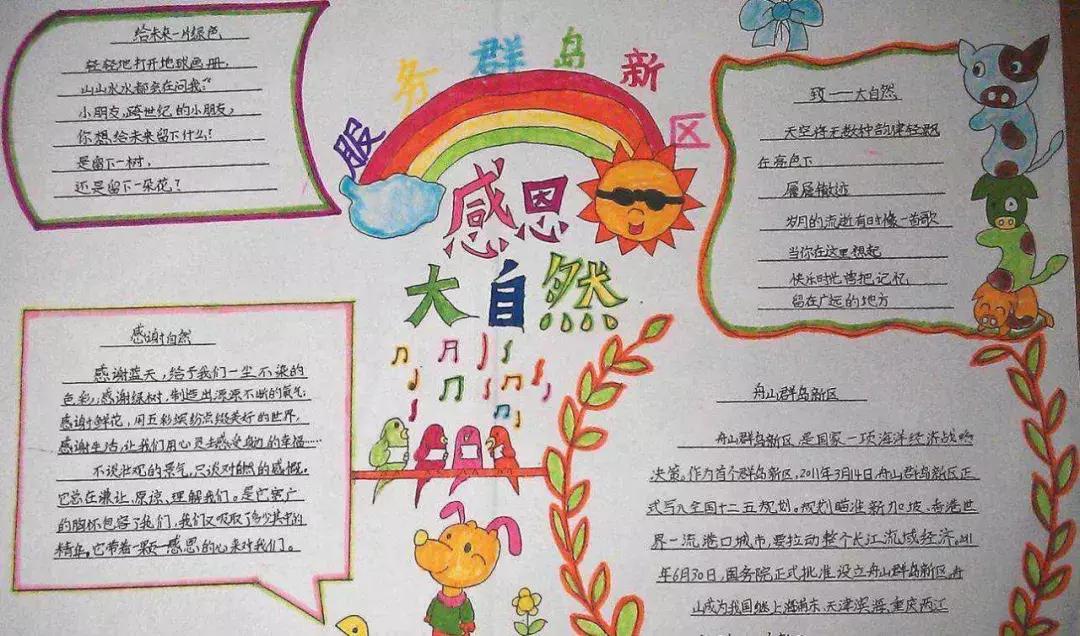 服务群岛新区
感恩
大自然
给未来一片绿色
轻轻地打开地球画册,
山山水水都会在问我:"
小朋友,跨世纪的小朋友,
你想给未来留下什么!
是留下一树,
还是留下一朵花?
致——大自然
天空将无数种韵律轻敲
在亮色下
层层
岁月的流逝有时像一首歌
当你在这里想起
快乐时光曾把记忆
留在广远的地方
感谢自然
感谢蓝天,给予我们一尘不染的
色彩,感谢绿树,制造出源源不断的氧气;
感谢鲜花,用五彩缤纷点缀美好的世界,
感谢生活,让我们用心灵去感受的幸福……
不谈壮观的景气,只谈对自然的感慨。
它总在谦让、原谅、理解我们。是它宽广
的胸怀包容了我们,我们又吸取了多少其中的
精华。它带着一颗感恩的心来对我们。
舟山群岛新区
舟山群岛新区是国家一项海洋经济战略
决策。作为首个群岛新区,2011年3月14日,舟山群岛新区正
式写入全国十二五规划。规划瞄准新加坡、香港世
界一流港口城市,要拉动整个长江流域经济。2011
年6月30日,国务院正式批准设立舟山群岛新区,舟
山成为我国继上海浦东、天津滨海、重庆两江